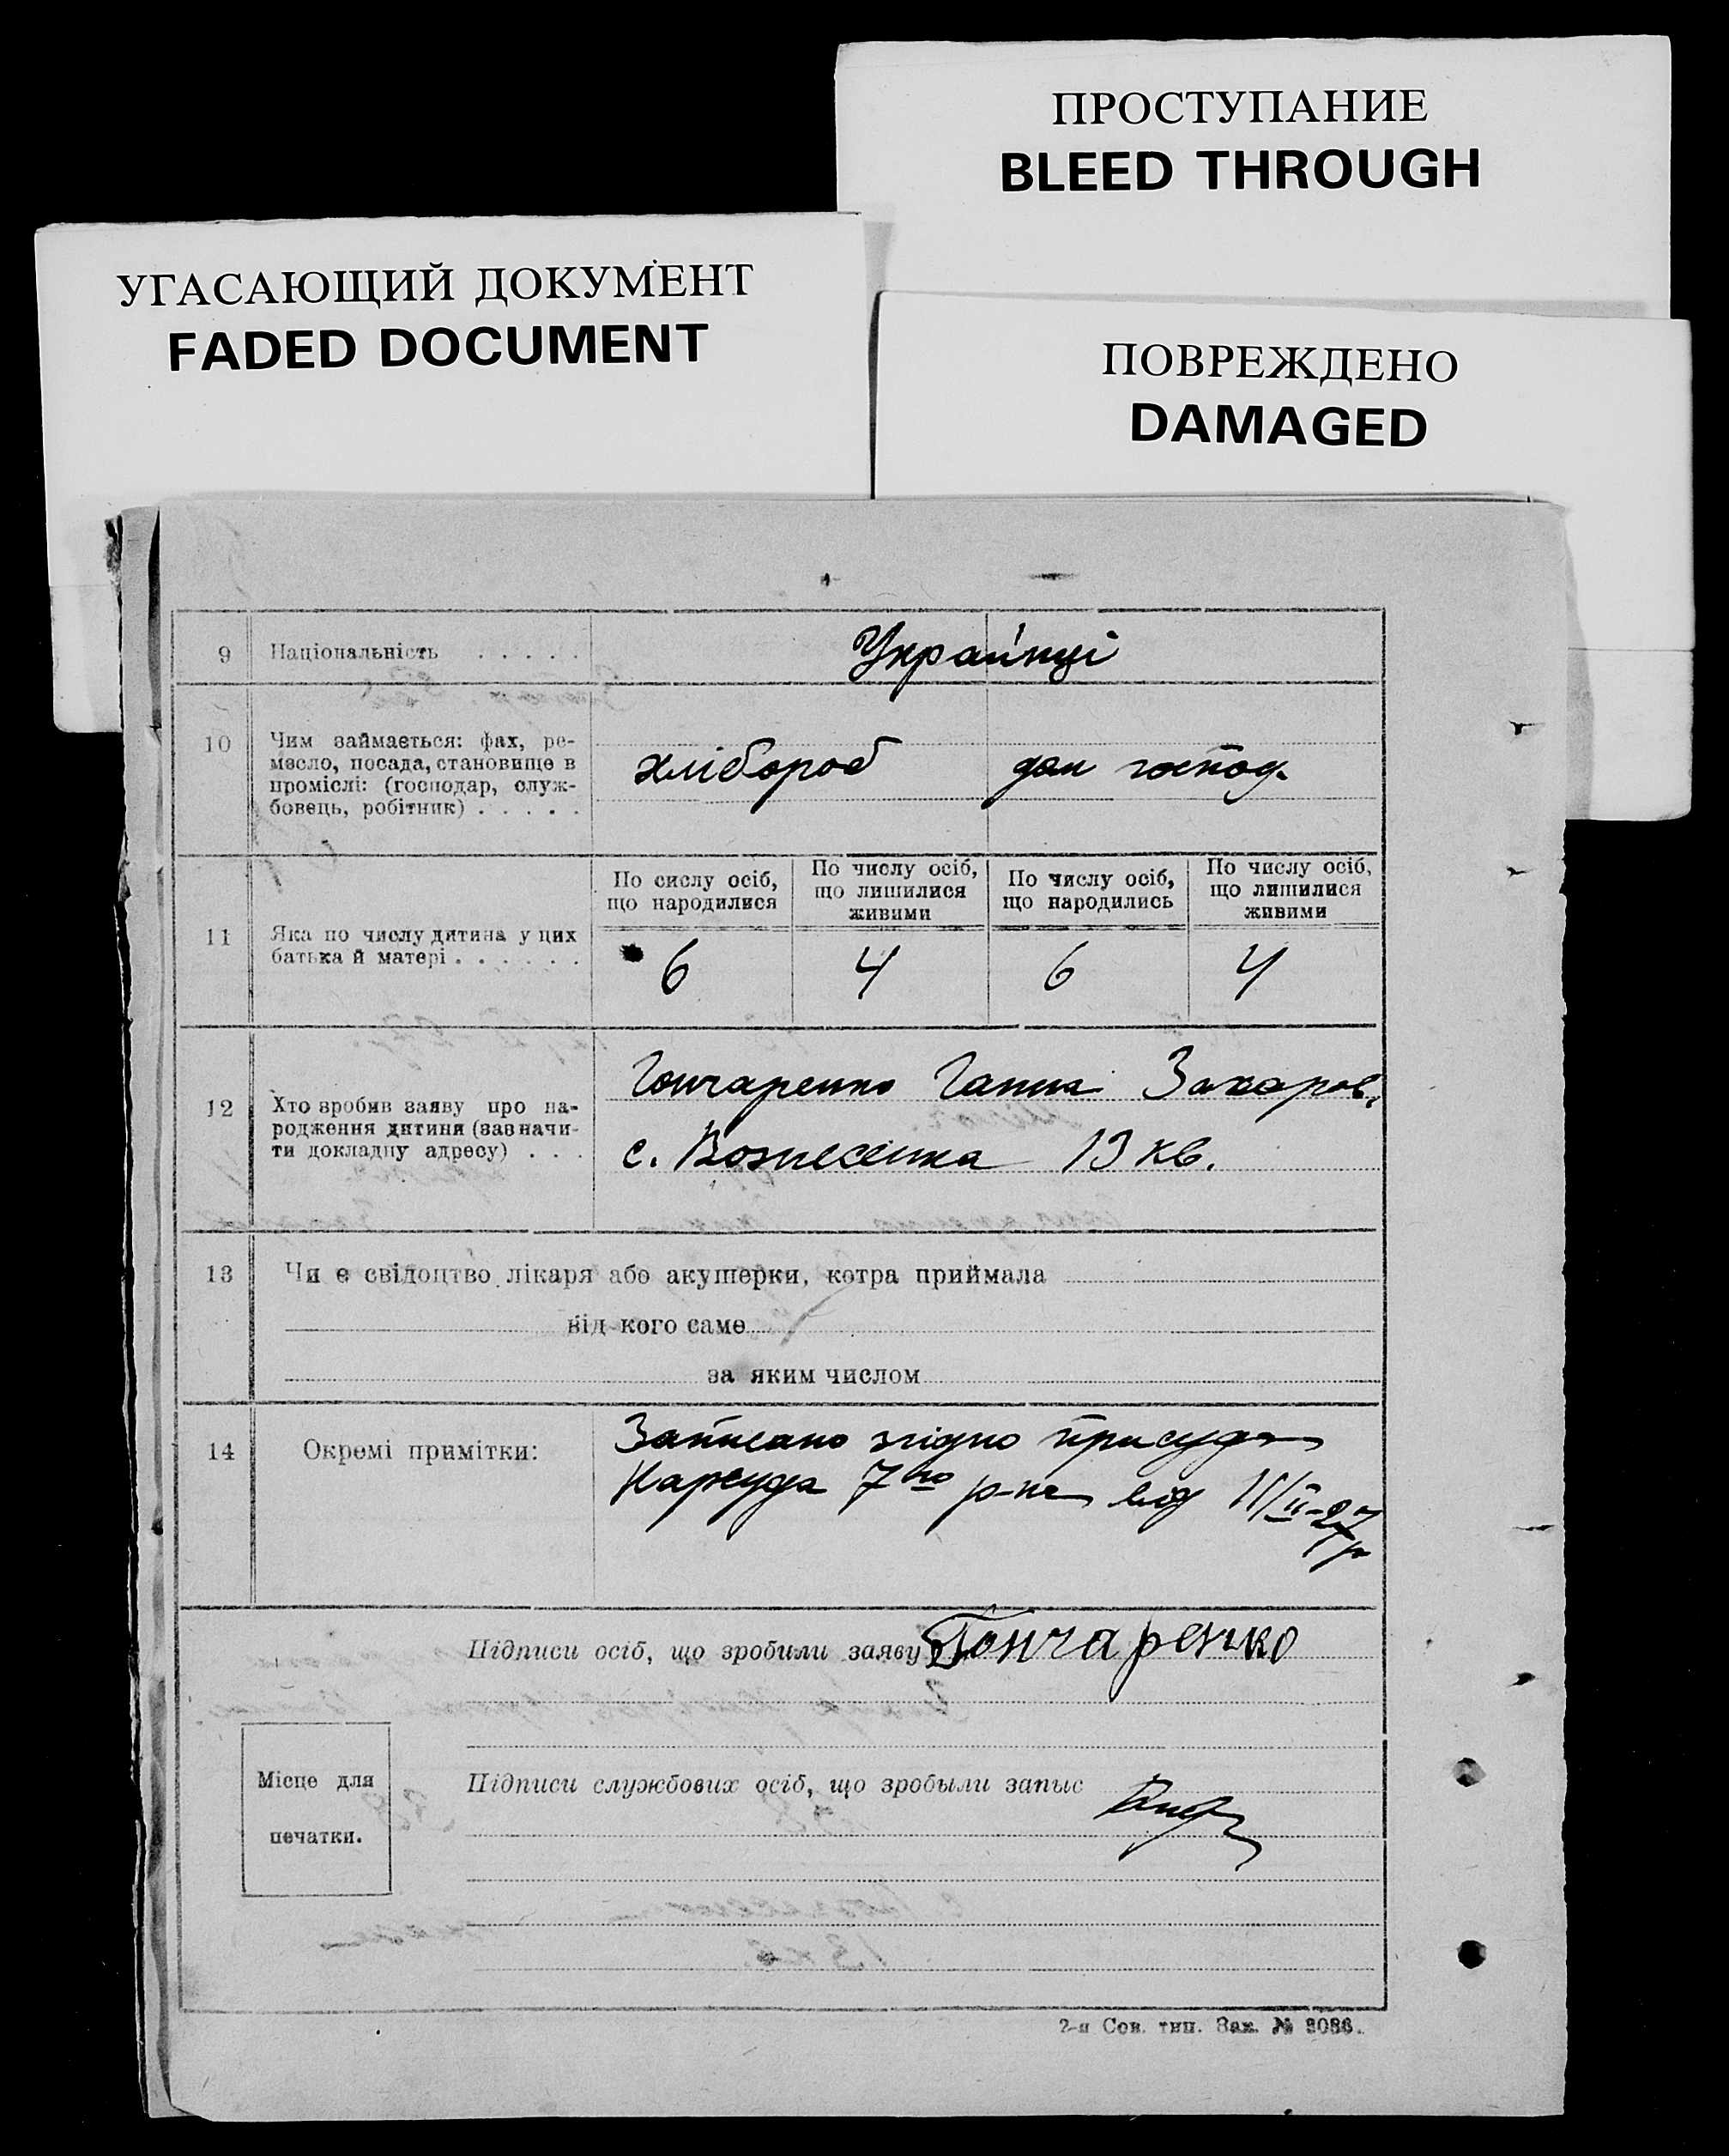 ПРОСТУПАНИЕ
BLEED THROUGH
УГАСАЮЩИЙ ДОКУМЕНТ
FADED DOCUMENT
ПОВРЕЖДЕНО
DAMAGED
9 Національність . . . . . Українці
10 Чим займається: фах, ре-
месло, посада, становище в
проміслі: (господар, служ-
бовець, робітник) . . . . .
хлібороб дом господ.
По сислу осіб,
що народилися
По числу осіб,
що лишилися
живими
По числу осіб,
що народились
По числу осіб,
що лишилися
живими
11 Яка по числу дитина у цих
батька й матері . . . . . .
6 4 6 4
12 Хто зробив заяву про на-
родження дитини (зазначи-
ти докладну адресу) . . .
Гончаренко Ганна Захаров.
с. Вознесенка 13 кв.
13 Чи е свідоцтво лікаря або акушерки, котра приймала
від кого саме
за яким числом
14 Окремі примітки:
Записано згідно присуда
Нарсуда 7го р-на від 11/II-27
р
Підписи осіб, що зробили заяву Гончаренко
Місце для
печатки.
Підписи службових осіб, що зробыли запыс
2-я Сов. тип. Зак. № 3086.